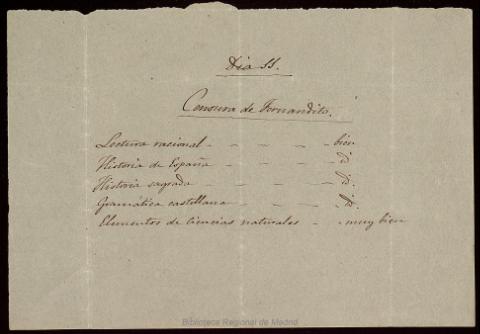 Día 11.
Censura de Fernandito.
Lectura nacional - - - - bien
Historia de España - - - - id.
Historia sagrada - - - - id.
Gramática castellana - - - - id.
Elementos de ciencias naturales - - muy bien
Biblioteca Regional de Madrid